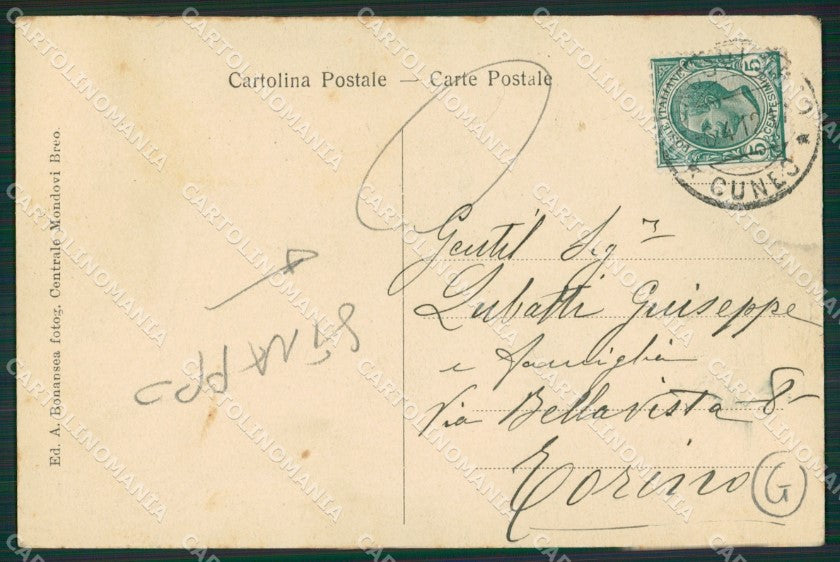 Cartolina Postale — Carte Postale
Ed. A. Bonansea fotog. Centrale Mondovi Breo.
POSTE ITALIANE
CENTESIMI
5 5
* CUNEO *
Gentil Sigr
Lubatti Guiseppe
e famiglia
Via Bellavista 8
Torino
G
STRAPPO
CARTOLINOMANIA